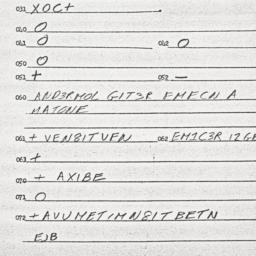 031 XOC+
040 O
041 O 042 O
050 O
051 + 052 —
060 AND3RMOL GIT3R EMECN A
MATONE
061 + VEN8ITVEN 062 EM1C3R 12GE
063 +
070 + AXIBE
071 O
072 + AVUMETIMN8IT BETN
EJB